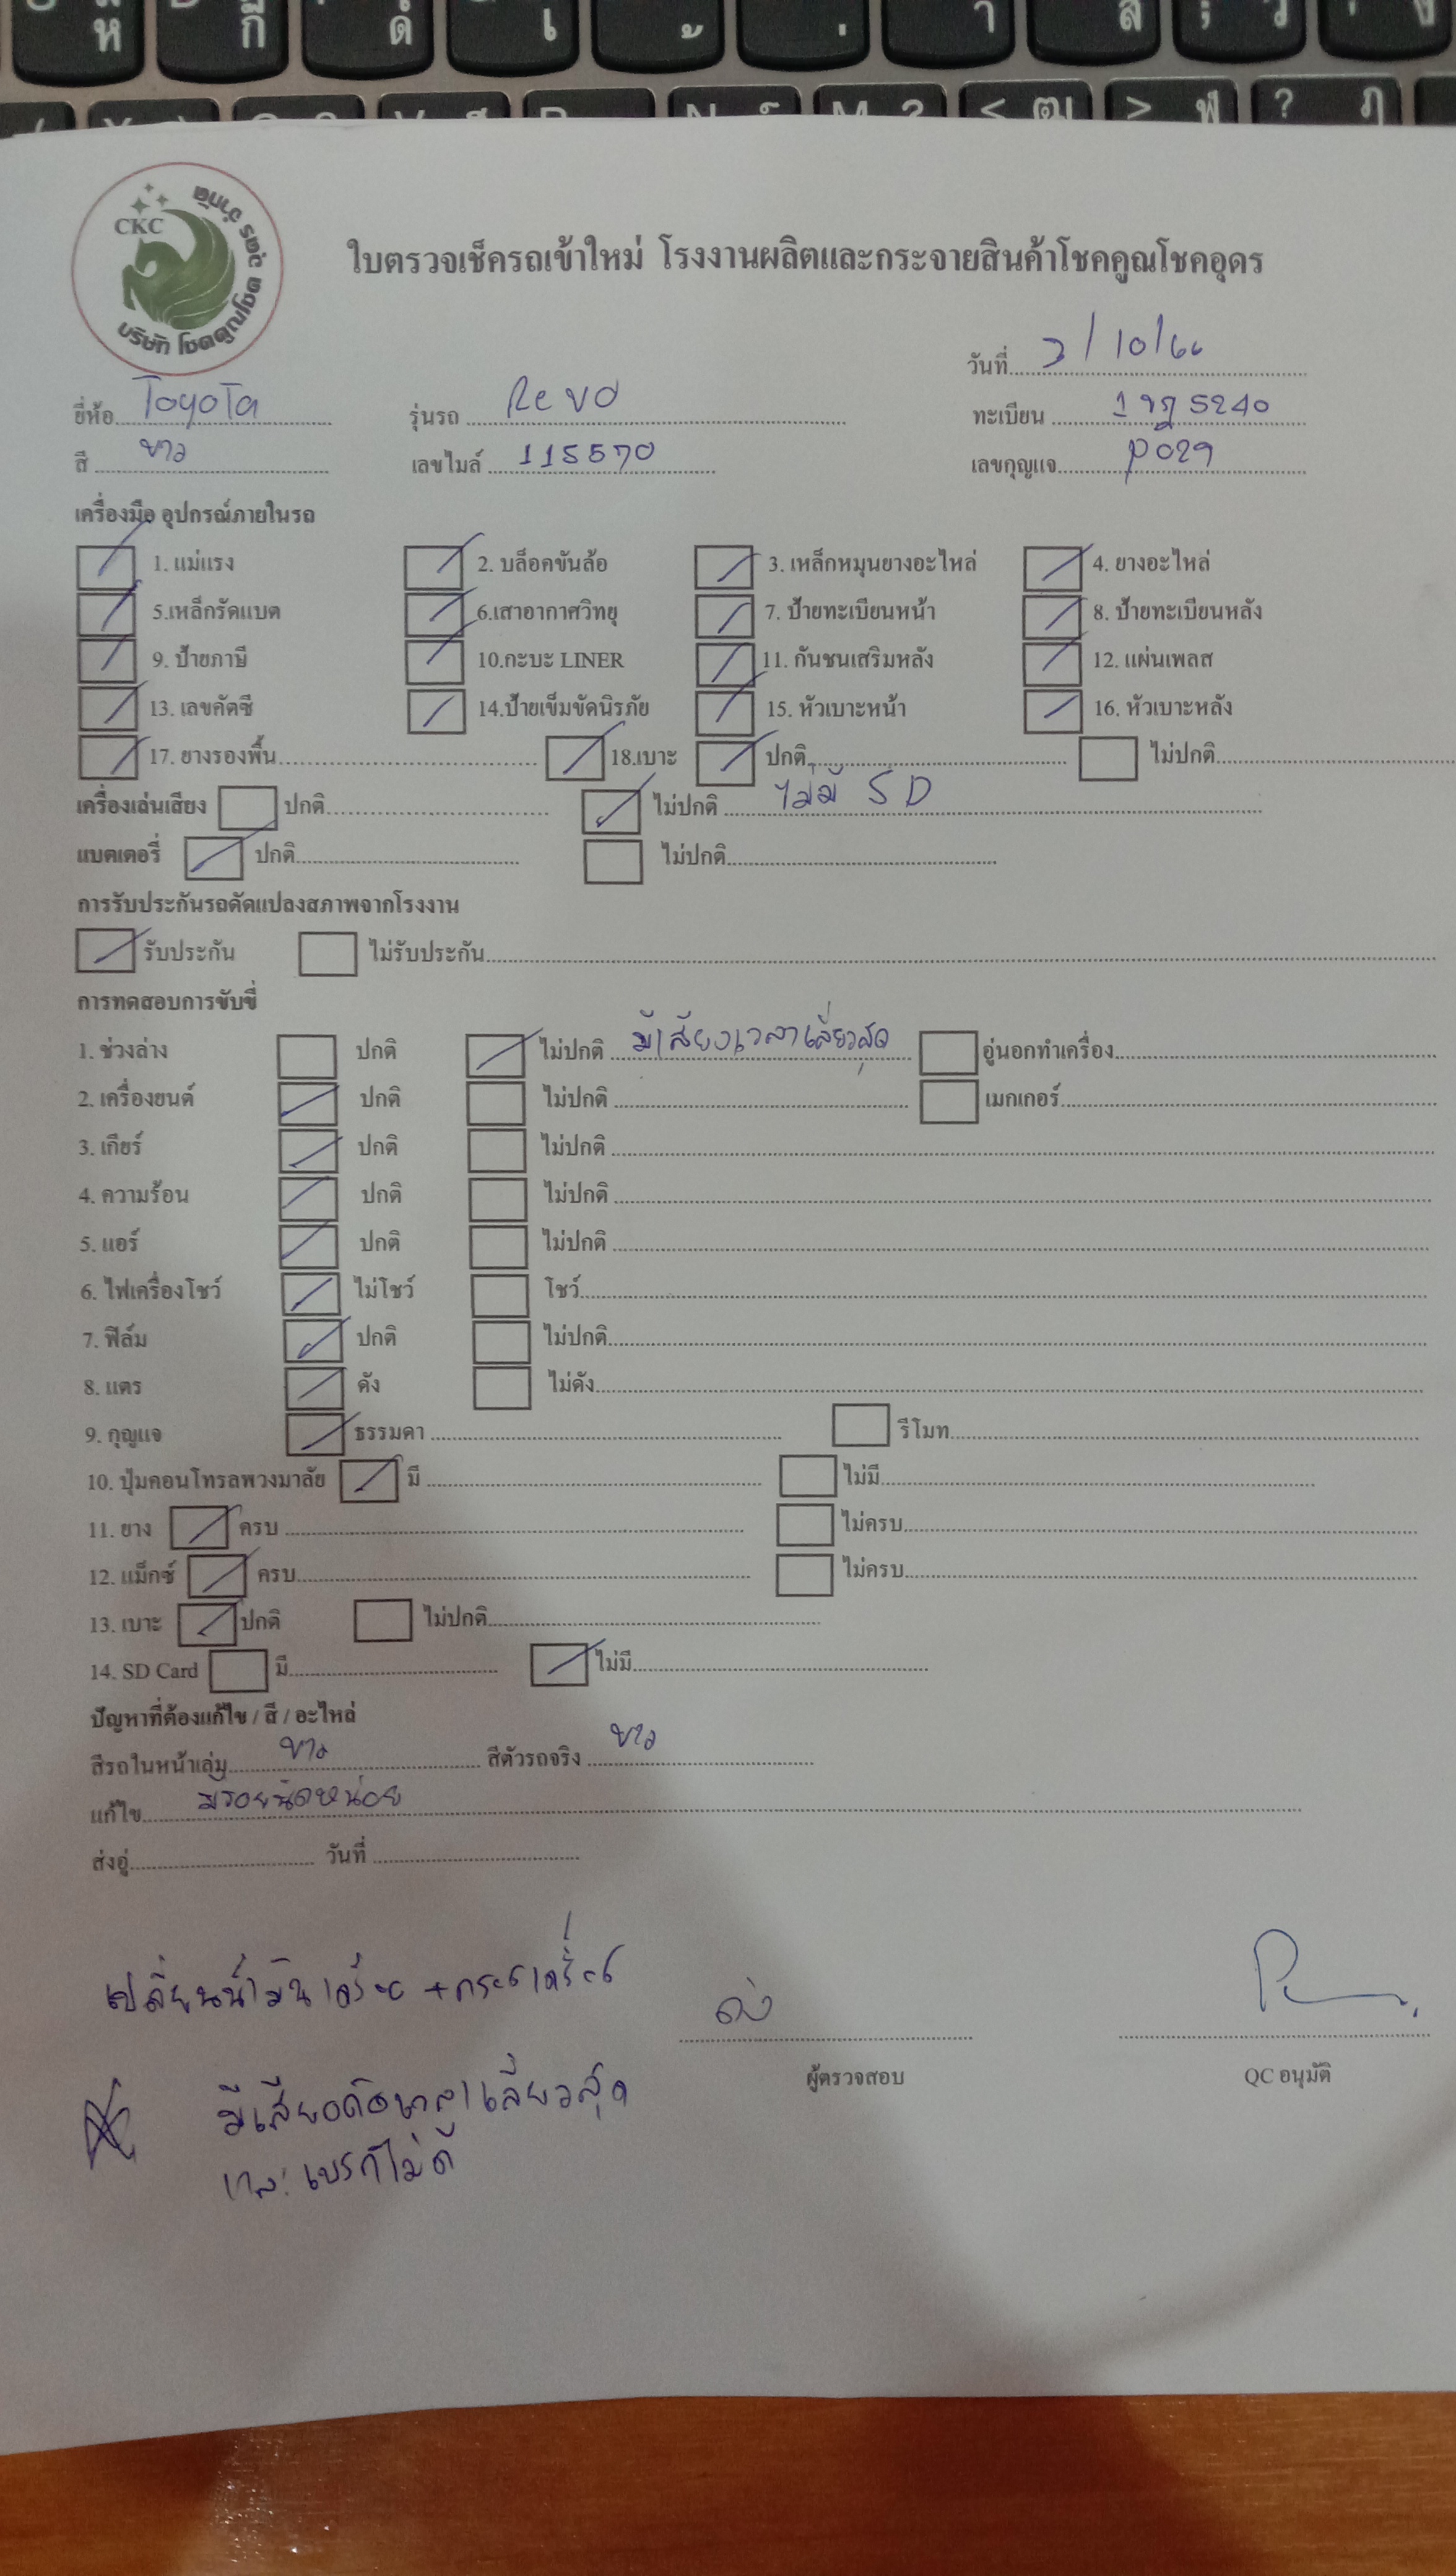 CKC
บริษัท โชคคูณโชค อุดร จำกัด
ใบตรวจเช็ครถเข้าใหม่ โรงงานผลิตและกระจายสินค้าโชคคูณโชคอุดร
วันที่ 3/10/66
ยี่ห้อ Toyota รุ่นรถ Revo ทะเบียน 1ขฎ 5240
สี ขาว เลขไมล์ 115570 เลขกุญแจ P029
เครื่องมือ อุปกรณ์ภายในรถ
1. แม่แรง 2. บล็อคขันล้อ 3. เหล็กหมุนยางอะไหล่ 4. ยางอะไหล่
5.เหล็กรัดแบต 6.เสาอากาศวิทยุ 7. ป้ายทะเบียนหน้า 8. ป้ายทะเบียนหลัง
9. ป้ายภาษี 10.กะบะ LINER 11. กันชนเสริมหลัง 12. แผ่นเพลส
13. เลขคัตซี 14.ป้ายเข็มขัดนิรภัย 15. หัวเบาะหน้า 16. หัวเบาะหลัง
17. ยางรองพื้น 18.เบาะ ปกติ ไม่ปกติ
เครื่องเล่นเสียง ปกติ ไม่ปกติ ไม่มี SD
แบตเตอรี่ ปกติ ไม่ปกติ
การรับประกันรถดัดแปลงสภาพจากโรงงาน
รับประกัน ไม่รับประกัน
การทดสอบการขับขี่
1. ช่วงล่าง ปกติ ไม่ปกติ มีเสียงเวลาเลี้ยวสุด อู่นอกทำเครื่อง
2. เครื่องยนต์ ปกติ ไม่ปกติ เมกเกอร์
3. เกียร์ ปกติ ไม่ปกติ
4. ความร้อน ปกติ ไม่ปกติ
5. แอร์ ปกติ ไม่ปกติ
6. ไฟเครื่องโชว์ ไม่โชว์ โชว์
7. ฟิล์ม ปกติ ไม่ปกติ
8. แตร ดัง ไม่ดัง
9. กุญแจ ธรรมดา รีโมท
10. ปุ่มคอนโทรลพวงมาลัย มี ไม่มี
11. ยาง ครบ ไม่ครบ
12. แม็กซ์ ครบ ไม่ครบ
13. เบาะ ปกติ ไม่ปกติ
14. SD Card มี ไม่มี
ปัญหาที่ต้องแก้ไข / สี / อะไหล่
สีรถในหน้าเล่ม ขาว สีตัวรถจริง ขาว
แก้ไข มีรอยนิดหน่อย
ส่งอู่ วันที่
เปลี่ยนน้ำมันเครื่อง
ผู้ตรวจสอบ QC อนุมัติ
มีเสียงดังเวลาเลี้ยวสุด
และเบรกไม่ดี